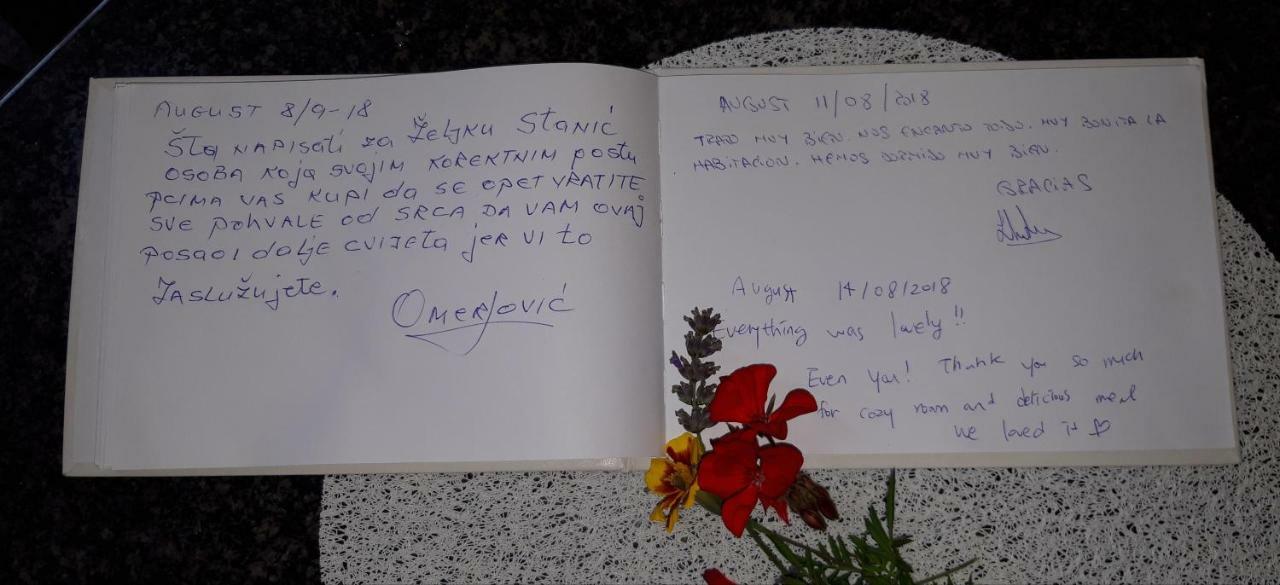 AUGUST 8/9-18
Šta NAPISati za ŽELJKU Stanić
OSOBA KOJA SVOJIM KOREKTNIM postu
PCIMA VAS KUPI da SE OPET VRATITE
SVE POHVALE od SRCA DA VAM OVAJ
POSAO I dalje CVIJETA jER VI to
ZASLUŽUJETE.
OMEROVIĆ
AUGUST 11/08/2018
TRATO MUY BIEN. NOS ENCANTO TODO. MUY BONITA LA
HABITACION. HEMOS DORMIDO MUY BIEN.
GRACIAS
August 14/08/2018
Everything was lovely!!
Even You! Thank you so much
for cozy room and delicious meal
We loved it